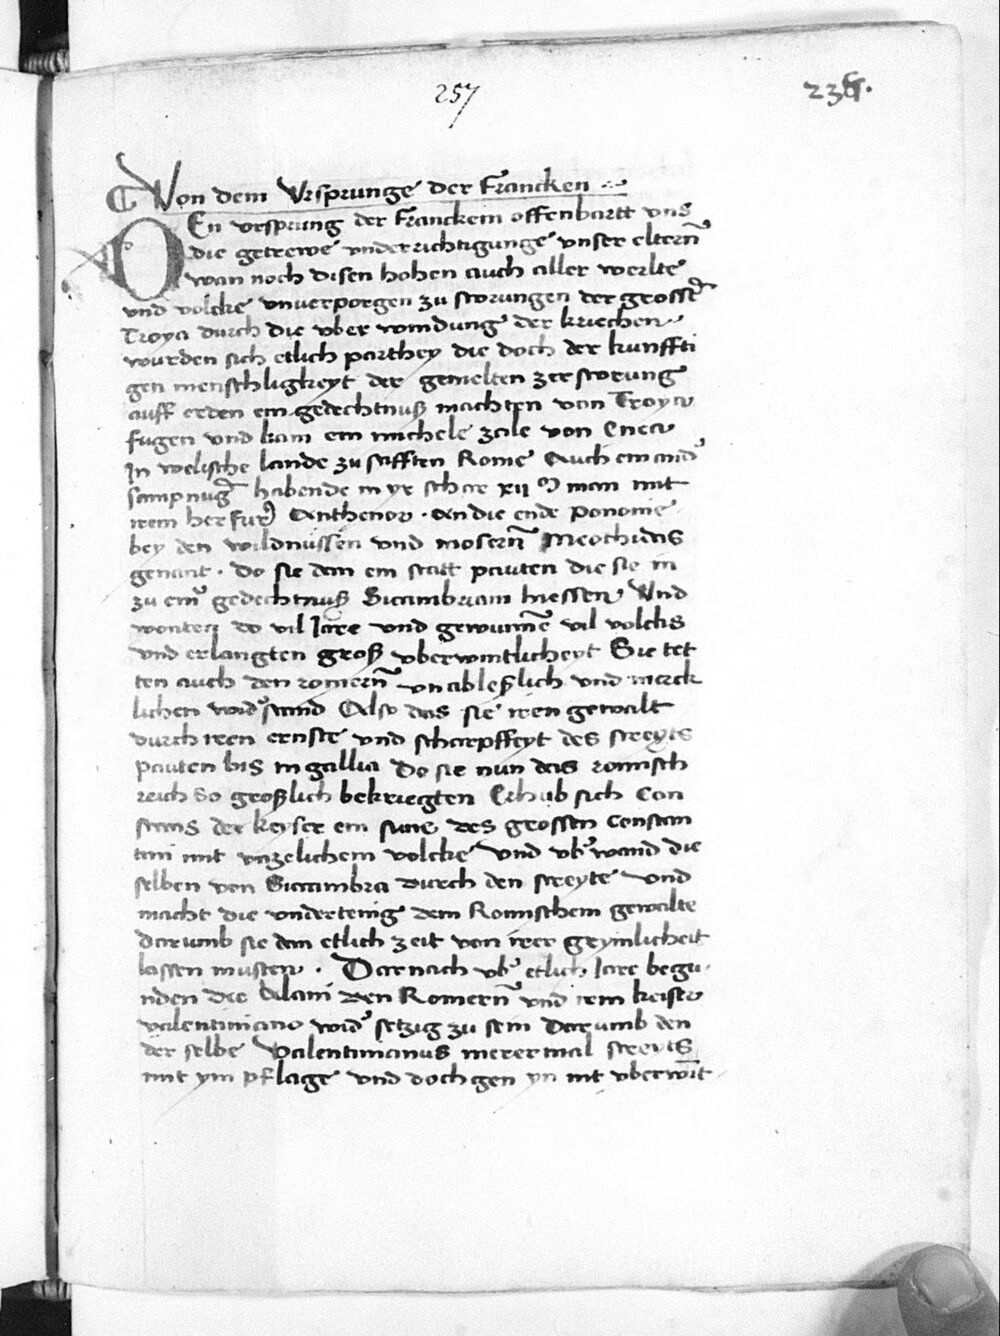 257
236.
Von dem Vrsprunge der Francken
DEn vrsprung der Franckem offenbartt vns
die getrewe vnderrichtigunge vnser eltern̄
wan noch disen hohen auch aller werlte
vnd volcke vnuerporgen zu storungen der grosse͛
Troya durch die vber windung der kriechen
wurden sich etlich parthey die doch der kunffti
gen menschligkeyt der gemelten zerstorung
auff erden ein gedechtnuß machten von Troya
fugen vnd kam ein michele zale von Enea
In welische lande zu stifften Rome Auch ein and͛
sampnug̅ habende in yr schar xij M man mit
irem herfur͛ Anthenor . an die ende ponome
bey den wildnussen vnd mosern̄ Meothidas
genant . do sie dan ein statt pauten die sie in
zu ein͛ gedechtnuß Sicambriam hiessen Vnd
wonten do vil Jare vnd gewun̄e vil volcks
vnd erlangten groß vberwintlicheyt Sie tet
ten auch den romern̄ vnableßlich vnd merck
lichen wid͛stand Also das sie iren gewalt
durch iren ernste vnd scharpffeyt des streyts
pauten bis in gallia Do sie nun das romisch
reich so großlich bekriegten Erhub sich Con
stans der keyser ein sune des grossen constan
tini mit vnzelichem volcke Vnd vb͛wand die
selben von Sicambra durch den streyte Vnd
macht die vndertenig dem Romischem gewalte
darumb sie dan etlich zeit von irer heymlicheit
lassen musten . Darnach vb͛ etlich Jare begu
nden die Alani den Romern̄ vnd irem keiser
valentiniano wid͛ setzig zu sein Darumb den
der selbe Valentinianus merermal streyts
mit ym pflage vnd doch gen yn nit vberwi̅t